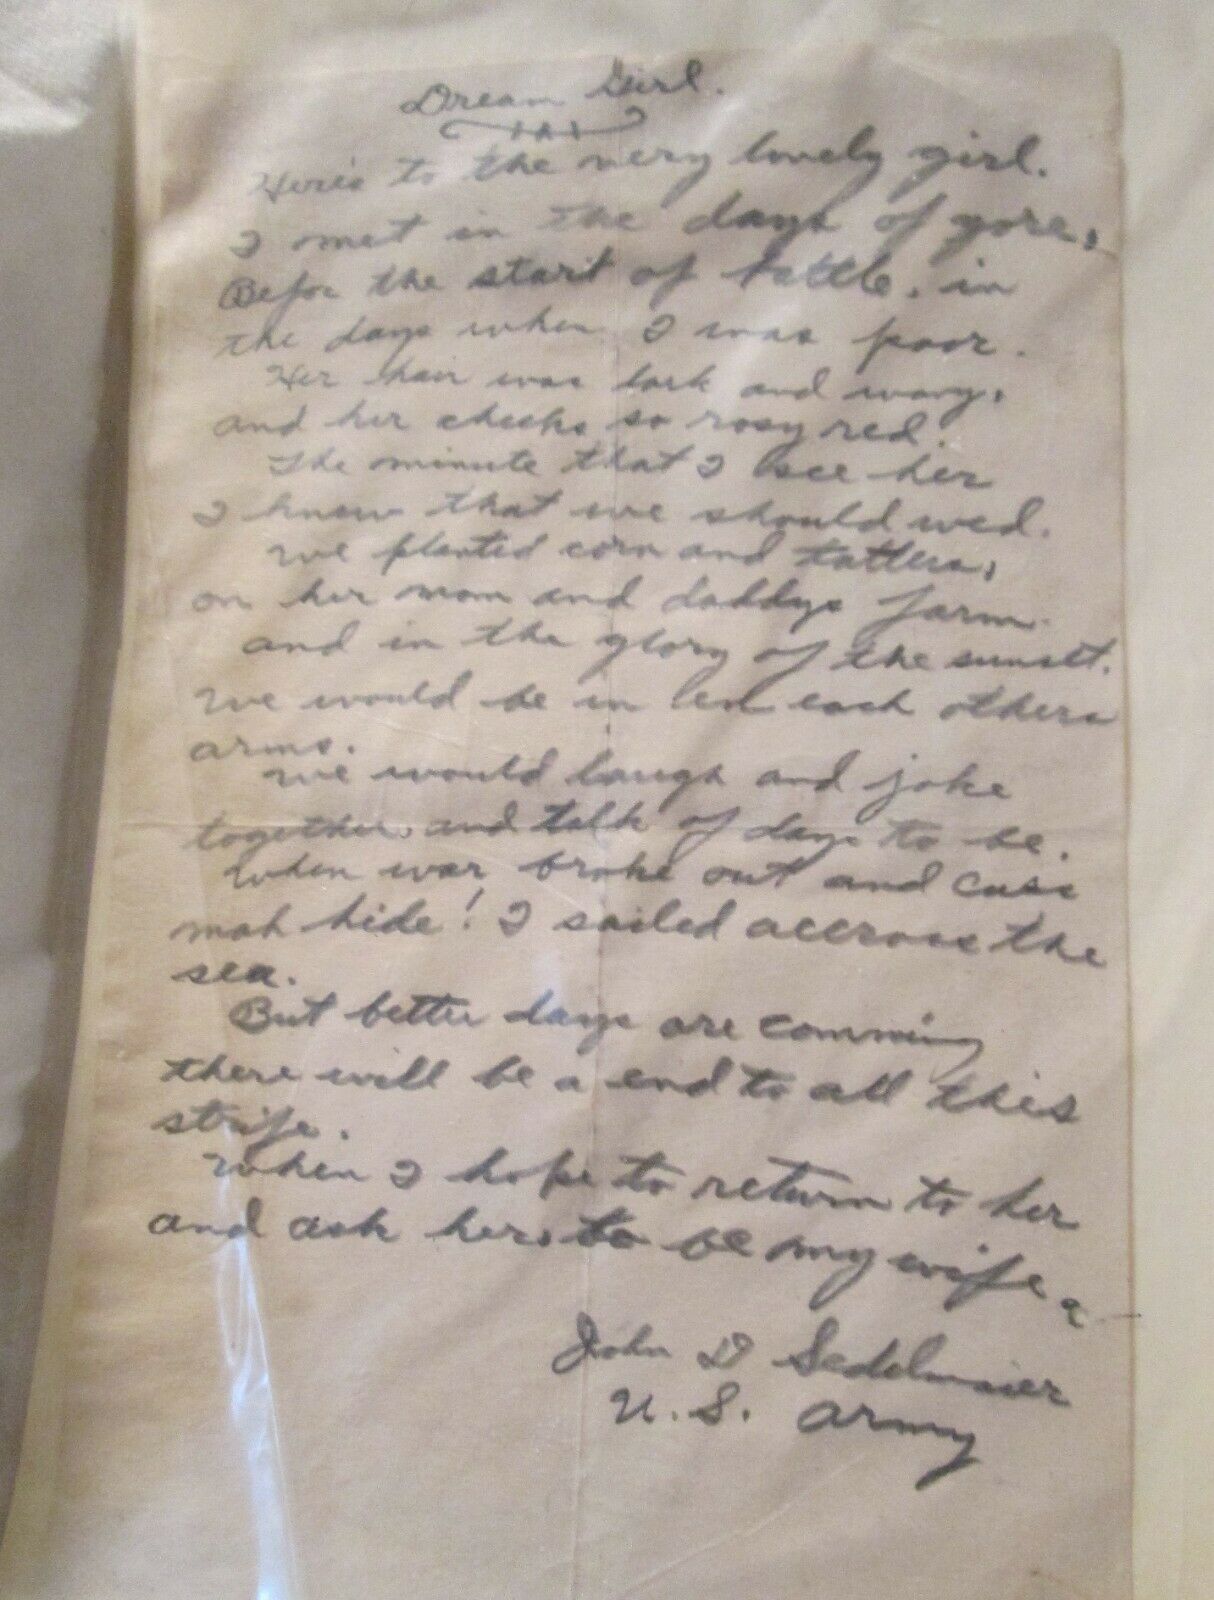 Dream Girl.
Here's to the very lovely girl.
I met in the days of yore,
Befor the start of battle, in
the days when I was poor.
Her hair was dark and wavy,
and her cheeks so rosy red.
The minute that I see her
I knew that we should wed.
We planted corn and tatters,
on her mom and daddys farm.
and in the glory of the sunset.
We would be in each others
arms.
We would laugh and joke
together, and talk of days to be.
When war broke out and cuss
mah hide! I sailed accross the
sea.
But better days are comming
there will be a end to all this
strife.
When I hope to return to her
and ask her, to be my wife
John D Sedelmaier
U.S. Army